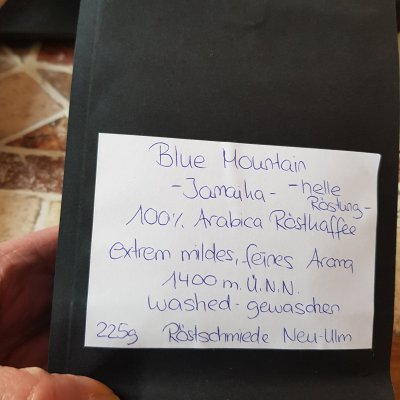 Blue Mountain
-Jamaika- -helle
Röstung-
100% Arabica Röstkaffee
extrem mildes, feines Aroma
1400 m.Ü.N.N.
washed-gewaschen
225g Röstschmiede Neu-Ulm